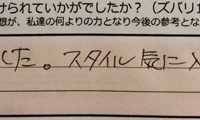 けられていかがでしたか？（ズバリ
想が、私達の何よりの力となり今後の参考とな
した。スタイル気に入